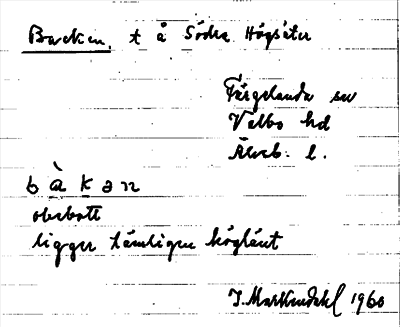 Backen, t å Södra Högsäter
Färgelanda sn
Valbo hd
Älvsb. l.
b à k ə n
obebott
ligger tämligen höglänt
J. Markendahl 1960